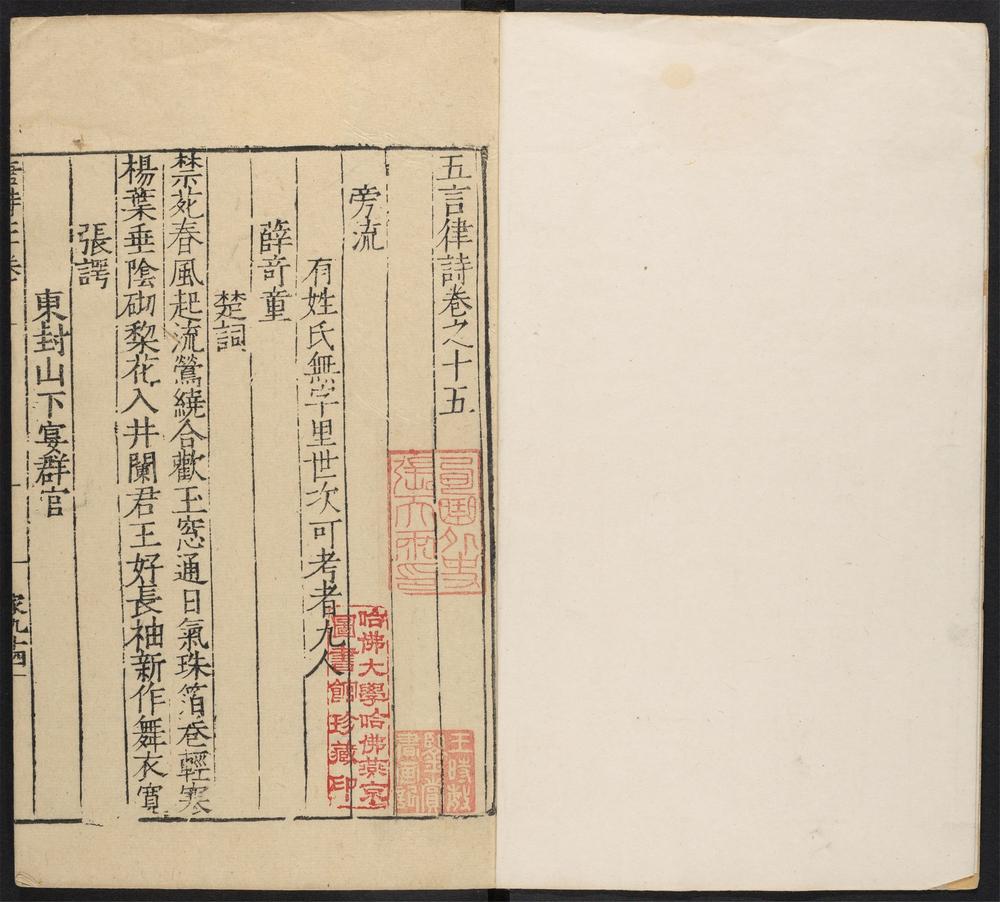 五言律詩卷之十五
旁流
有姓氏無字里世次可考者九人
薛竒童
楚詞
禁苑春風起流鶯繞合歡玉窓通日氣珠箔卷輕寒
楊葉垂陰砌黎花入井闌君王好長袖新作舞衣寬
張諤
東封山下宴群官
哈佛大學哈佛燕京
圖書館珍藏印
王時敏
鑒賞
書畫記